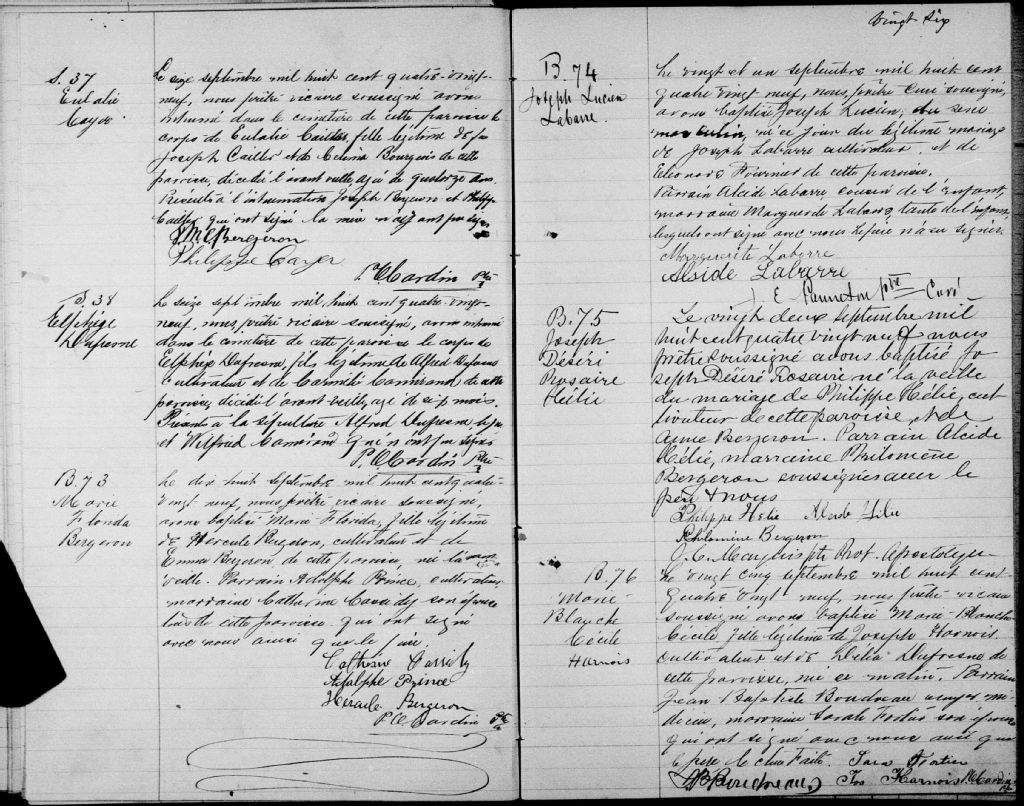 S. 37
Eulalie
Cayer
Le seize septembre mil huit cent quatre-vingt-
neuf, nous, prêtre vicaire soussigné avons
inhumé dans le cimetière de cette paroisse le
corps de Eulalie Cailler, fille légitime de
Joseph Cailler et de Célima Bourgeois de cette
paroisse, décédé l'avant veille agé de quatorze ans.
Présents à l'inhumation Joseph Bergeron et Philippe
Cailler qui ont signé
Bergeron
Philippe Cayer
P. O Cardin Ptre
S. 38
Elphége
Dufresne
Le seize septembre mil huit cent quatre-vingt-
neuf, nous, prêtre vicaire soussigné, avons inhumé
dans le cimetière de cette paroisse le corps de
Elphége Dufresne, fils légitime de Alfred Dufresne
cultivateur et de de cette
paroisse, décédé l'avant veille, agé de six mois.
Présents à la sépulture Alfred Dufresne
et Wilfred qui n'ont pu signer
P. O Cardin Ptre
B. 73
Marie
Florida
Bergeron
Le dix huit septembre mil huit cent quatre-
vingt neuf, nous, prêtre vicaire soussigné,
avons baptisé Marie Florida, fille légitime
de Hercule Bergeron, cultivateur et de
Emma Bergeron de cette paroisse, née la
veille. Parrain Adolphe Prince, cultivateur
marraine Catherine Cassidy son épouse
de cette paroisse qui ont signé
avec nous ainsi que le père.
Catherine Cassidy
Adolphe Prince
Hercule Bergeron
P. O Cardin Ptre
Vingt Six
B. 74
Joseph Lucien
Labarre
Le vingt et un septembre mil huit cent
quatre vingt neuf, nous, prêtre curé soussigné,
avons baptisé Joseph Lucien, du sexe
masculin, né ce jour du légitime mariage
de Joseph Labarre cultivateur et de
Eleonore Fournier de cette paroisse.
Parrain Alcide Labarre cousin de l'Enfant,
marraine Marguerite Labarre, tante de l'Enfant
lesquels ont signé avec nous. Le père n'a su signer
Marguerite Labarre
Alside Labarre
J. E. Panneton ptre Curé
B. 75
Joseph
Désiré
Rosaire
Hélie
Le vingt deux septembre mil
huit cent quatre vingt neuf nous
prêtre soussigné avons baptisé Jo
seph Désiré Rosaire né la veille
du mariage de Philippe Hélie, cul
tivateur de cette paroisse, et de
Anne Bergeron. Parrain Alcide
Hélie, marraine Philomène
Bergeron soussignés avec le
père & nous
Philippe Helie Alcide Hélie
Philomine Bergeron
O. C. ptre Prot. Apostolique
B. 76
Marie
Blanche
Cécile
Harnois
Le vingt cinq septembre mil huit cent
quatre vingt neuf, nous, prêtre vicaire
soussigné avons baptisé Marie Blanche
Cécile fille légitime de Joseph Harnois
cultivateur et de Délia Dufresne de
cette paroisse, née ce matin. Parrain
Jean Baptiste Boudreau mé-
decin, marraine Sarah Fortier son épouse
qui ont signé avec nous ainsi que
le père. Sara Fortier
JB Boudreau Jos Harnois P. O Cardin